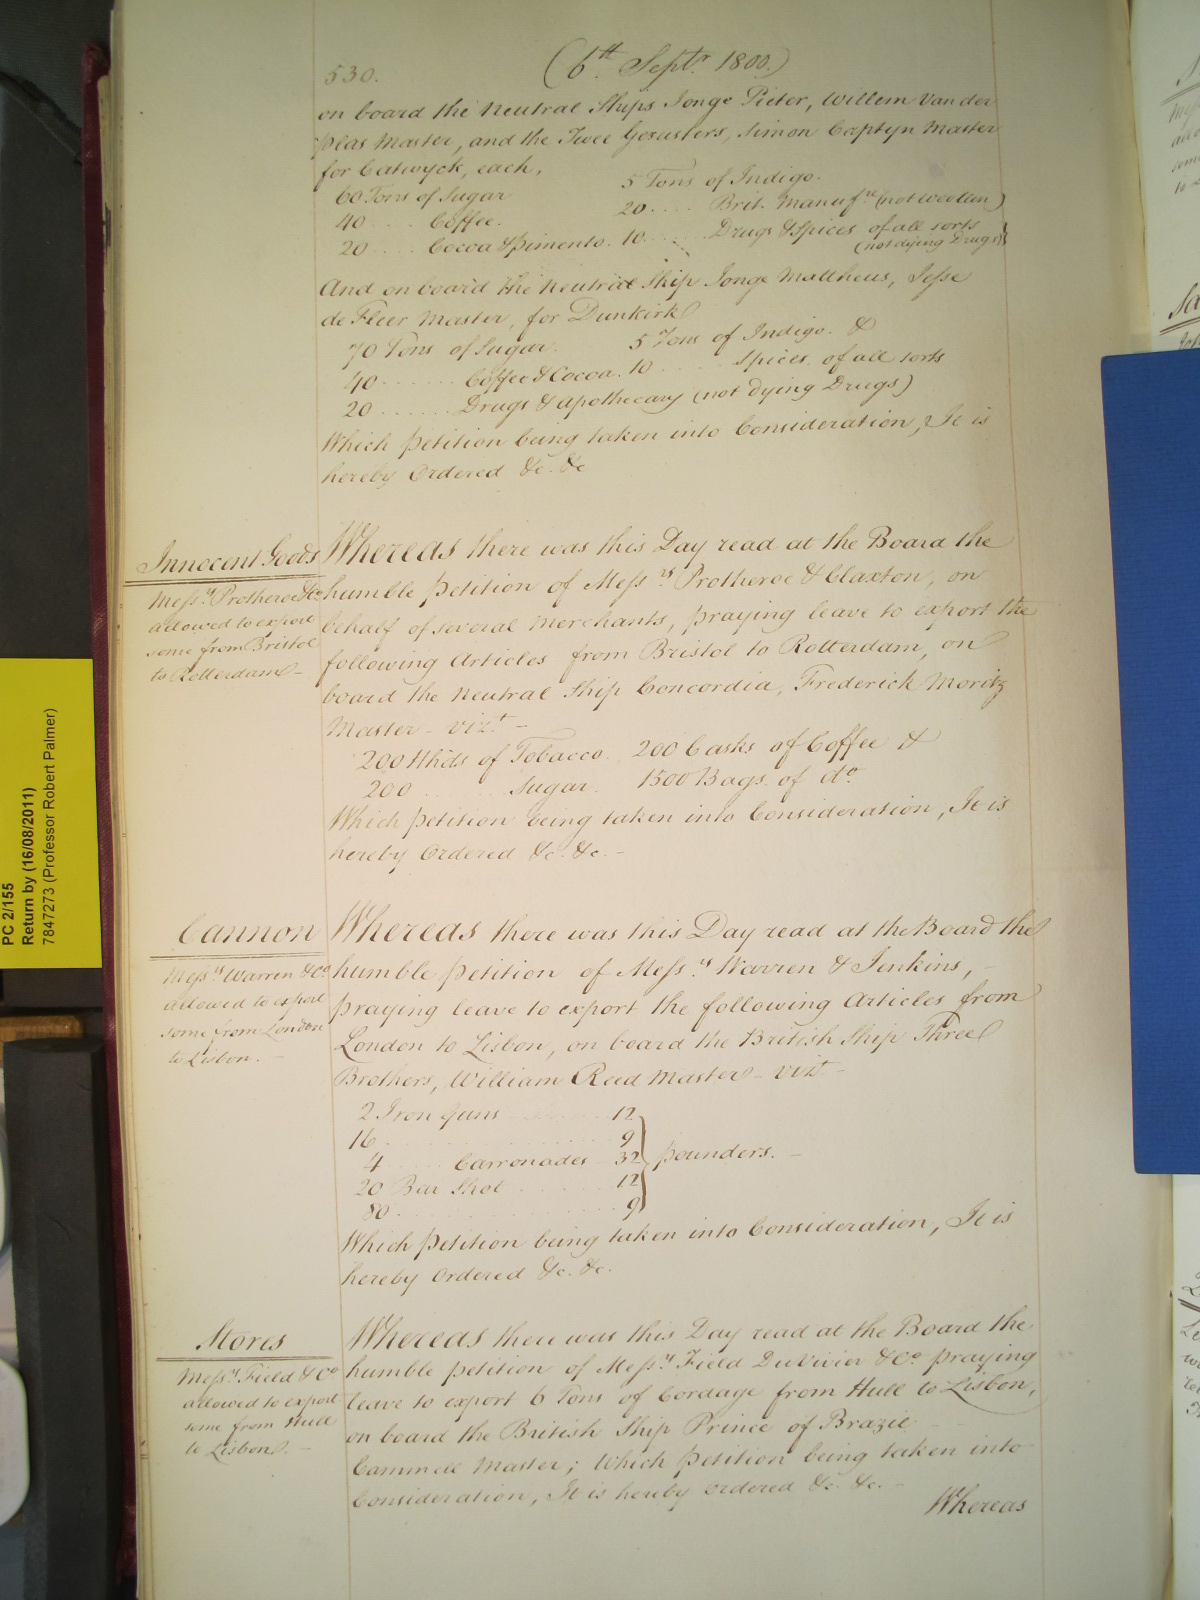 530.
(6th. Septr. 1800.)
on board the Neutral Ships Jonge Pieter, Willem Van der
Plas Master, and the Twee Gezusters, Simon Captyn Master
for Catwyck, each,
60 Tons of Sugar 5 Tons of Indigo.
40 .... Coffee. 20 .... Brit. Manufre (not woollen)
20 .... Cocoa & Pimento. 10 .... Drugs & Spices of all sorts
(not dying Drugs)
And on board the Neutral Ship Jonge Mattheus, Jesse
de Fleer Master, for Dunkirk
70 Tons of Sugar. 5 Tons of Indigo. &
40 ...... Coffee & Cocoa. 10 ..... Spices, of all sorts
20 ...... Drugs & Apothecary (not dying Drugs)
Which Petition being taken into Consideration, It is
hereby Ordered &c. &c
Innocent Goods
Messrs. Protheroe &Co
allowed to export
some from Bristol
to Rotterdam -
Whereas there was this Day read at the Board the
humble Petition of Messrs Protheroe & Claxton, on
behalf of several Merchants, praying leave to export the
following Articles from Bristol to Rotterdam, on
board the Neutral Ship Concordia, Frederick Moritz
Master - vizt. -
200 Hhds of Tobacco. 200 Casks of Coffee &
200 ..... Sugar. 1500 Bags. of do.
Which Petition being taken into Consideration, It is
hereby Ordered &c. &c. -
Cannon
Messrs Warren &Co.
allowed to export
some from London
to Lisbon. -
Whereas there was this Day read at the Board the
humble Petition of Messrs. Warren & Jenkins, -
praying leave to export the following Articles from
London to Lisbon, on board the British Ship Three
Brothers, William Reed Master - vizt -
2 Iron Guns ........ 12
16 ........ 9
4 ..... Carronades - 32 } pounders. -
20 Bar Shot ........ 12
80 ........ 9
Which Petition being taken into Consideration, It is
hereby Ordered &c. &c.
Stores
Messrs. Field & Co
allowed to export
some from Hull
to Lisbon. -
Whereas there was this Day read at the Board the
humble Petition of Messrs. Field DuVivier & Co. praying
leave to export 6 Tons of Cordage from Hull to Lisbon,
on board the British Ship Prince of Brazil
Cammell Master; Which Petition being taken into
Consideration, It is hereby Ordered &c. &c. -
Whereas
PC 2/155
Return by (16/08/2011)
7847273 (Professor Robert Palmer)